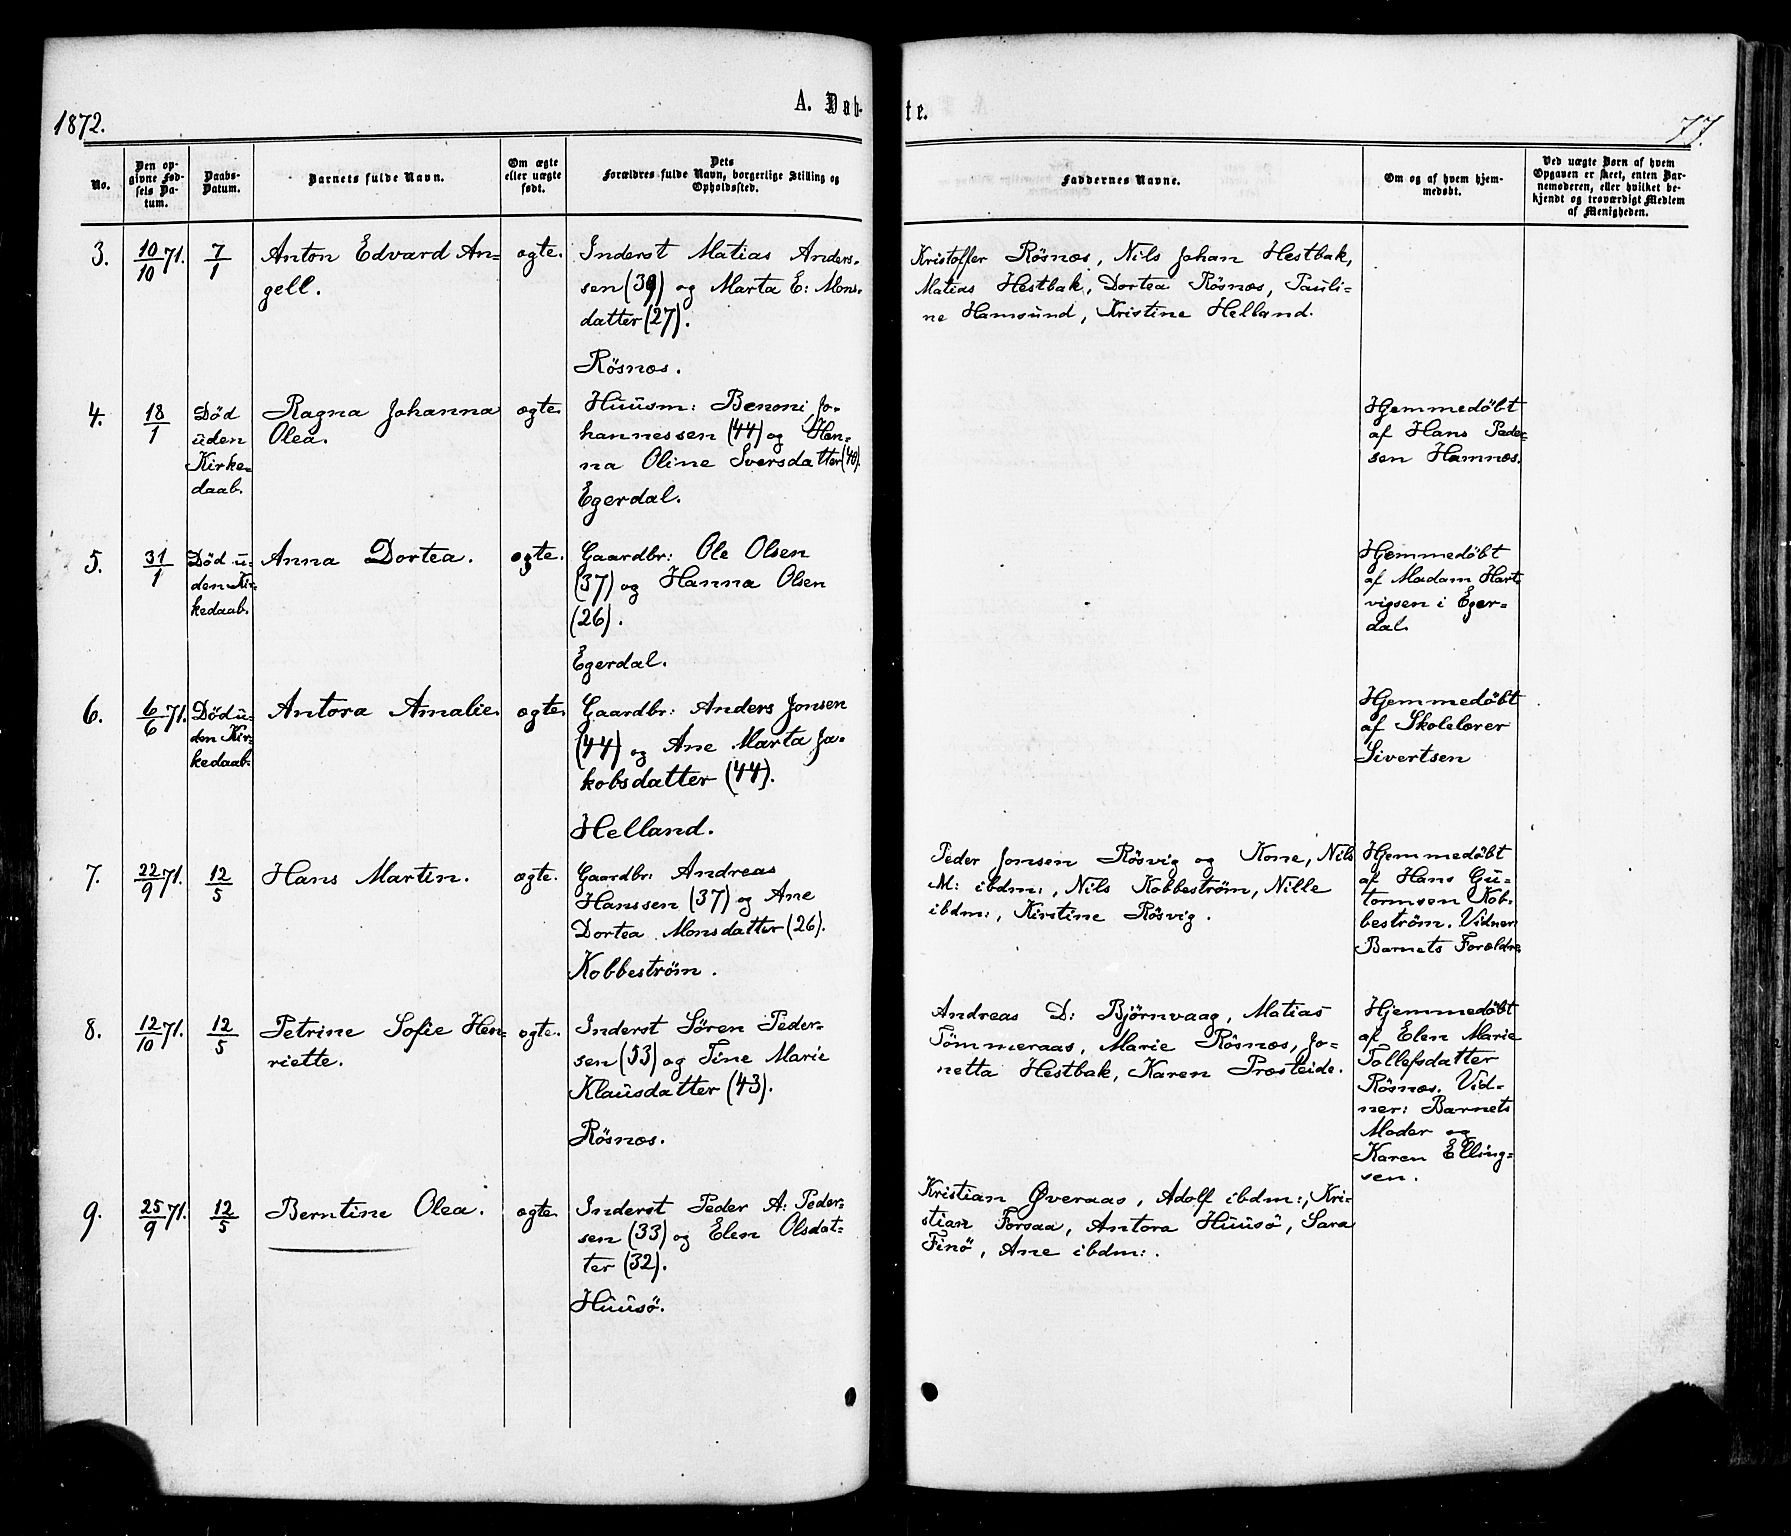 1872.
A. Døb-
te.
77.
No.
Den op-
givne Fød-
sels Da-
tum.
Daabs-
Datum.
Barnets fulde Navn.
Om ægte
eller uægte
født.
Dets
Forældres fulde Navn, borgerlige Stilling og
Opholdssted.
Faddernes Navne.
Om og af hvem hjem-
medøbt.
Ved uægte Børn af hvem
Opgaven er skeet, enten Bar-
nemoderen, eller hvilket be-
kjendt og troværdigt Medlem
af Menigheden.
3.
10/10 71.
7/1
Anton Edvard An-
gell.
ægte.
Inderst Matias Anders-
sen (39) og Marta E: Mons-
datter (27).
Røsnæs.
Kristoffer Røsnæs, Nils Johan Hestbak,
Matias Hestbak, Dortea Røsnæs, Pauli-
ne Hamsund, Kristine Helland.
4.
18/1
Død
uden
Kirke-
daab.
Ragna Johanna
Olea.
ægte.
Huusm: Benoni Jo-
hannessen (44) og Hen-
na Oline Iversdatter (40).
Egerdal.
Hjemmedøbt
af Hans Peder-
sen Hamnæs.
5.
31/1
Død u-
den Kir-
kedaab.
Anna Dortea.
ægte.
Gaardbr: Ole Olsen
(37) og Hanna Olsen
(26).
Egerdal.
Hjemmedøbt
af Madam Hart-
vigsen i Eger-
dal.
6.
6/6 71.
Død u-
den Kir-
kedaab.
Antora Amalie.
ægte.
Gaardbr: Anders Jonsen
(44) og Ane Marta Ja-
kobsdatter (44).
Helland.
Hjemmedøbt
af Skolelærer
Sivertsen
7.
22/9 71.
12/5
Hans Martin.
ægte.
Gaardbr: Andreas
Hanssen (37) og Ane
Dortea Monsdatter (26).
Kobbestrøm.
Peder Jonsen Røsvig og Kone, Nils
M: ibdm:, Nils Kobbestrøm, Nille
ibdm:, Kirstine Røsvig.
Hjemmedøbt
af Hans Gu-
tormsen Kob-
bestrøm. Vidner:
Barnets Forældre
8.
12/10 71.
12/5
Petrine Sofie Hen-
riette.
ægte.
Inderst Søren Peder-
sen (53) og Tine Marie
Klausdatter (43).
Røsnæs.
Andreas D: Bjørnvaag, Matias
Tømmeraas, Marie Røsnæs, Jo-
netta Hestbak, Karen Præsteide.
Hjemmedøbt
af Elen Marie
Tollefsdatter
Røsnæs. Vid-
ner: Barnets
Moder og
Karen Elling-
sen.
9.
25/9 71.
12/5
Berntine Olea.
ægte.
Inderst Peder A: Peder-
sen (33) og Elen Olsdat-
ter (32).
Huusø.
Kristian Øveraas, Adolf ibdm:, Kri-
stian Forsaa, Antora Huusø, Sara
Finø, Ane ibdm:.